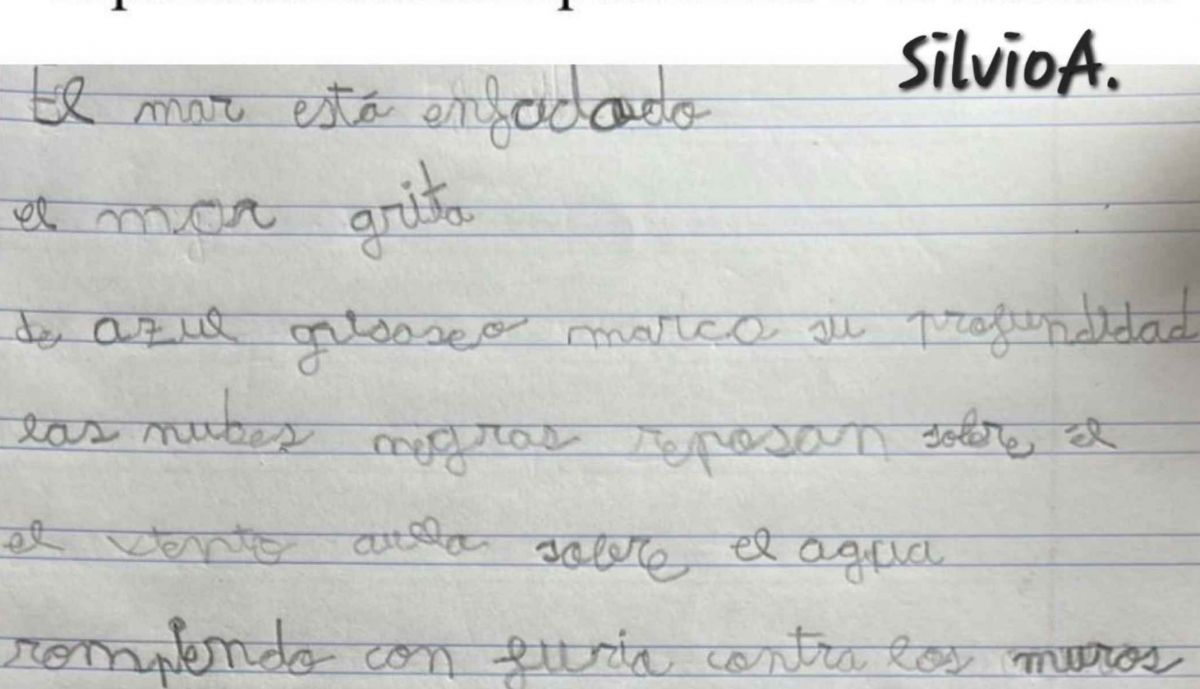 SilvioA.
El mar está enfadado
el mar grita
de azul grisaseo marca su profundidad
las nubes negras reposan sobre él
el viento aulla sobre el agua
rompiendo con furia contra los muros